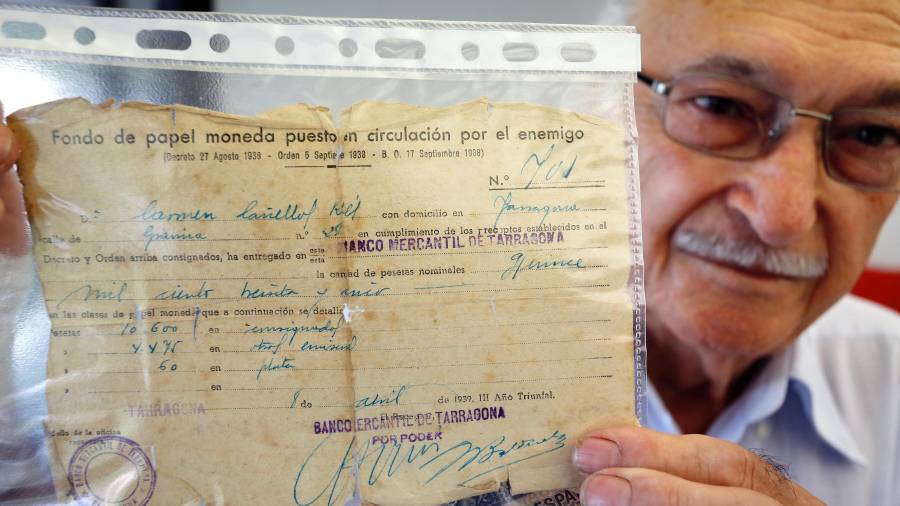 Fondo de papel moneda puesto en circulación por el enemigo
(Decreto 27 Agosto 1938 - Orden 5 Septie 1938 - B. O. 17 Septiembre 1938)
N.º 701
D.ª Carmen Cañellas con domicilio en Tarragona
calle de Gravina n.º en cumplimiento de los preceptos establecidos en el
Decreto y Orden arriba consignados, ha entregado en este esta BANCO MERCANTIL DE TARRAGONA
la can ad de pesetas nominales Quince
mil ciento treinta y cinco
en las clases de papel moneda que a continuación se detalla
Pesetas 10.600 en consignados
» 4.475 en otras
» 60 en plata
» en
TARRAGONA 8 de abril de 1939, III Año Triunfal.
El
BANCO MERCANTIL DE TARRAGONA
POR PODER
Sello de la oficina
BANCO MERCANTIL DE TARRAGONA
ESPA